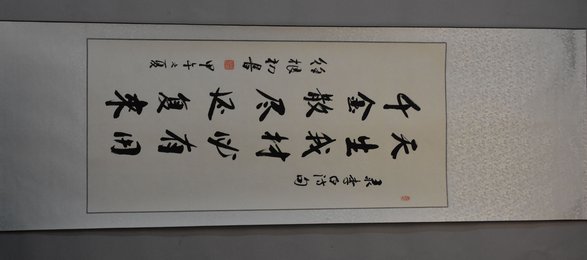 录李白诗句
天生我材必有用
千金散尽还复来
徐根初书 甲午之夏